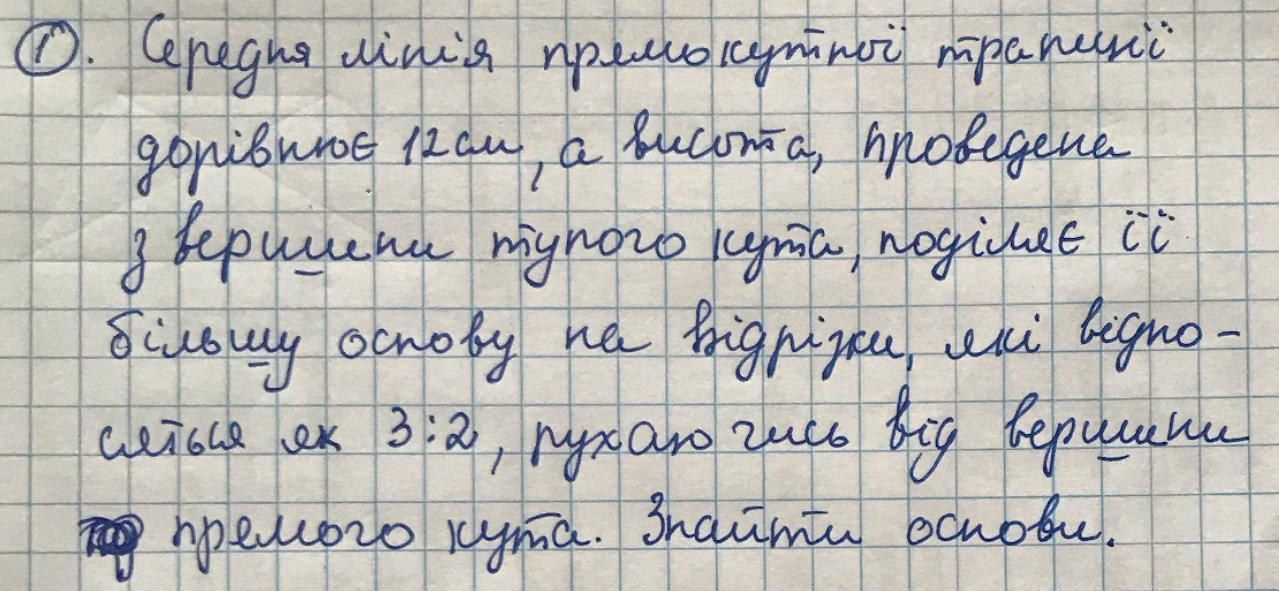 1. Середня лінія прямокутної трапеції
дорівнює 12 см, а висота, проведена
з вершини тупого кута, поділяє її
більшу основу на відрізки, які відно-
сяться як 3:2, рухаючись від вершини
прямого кута. Знайти основи.